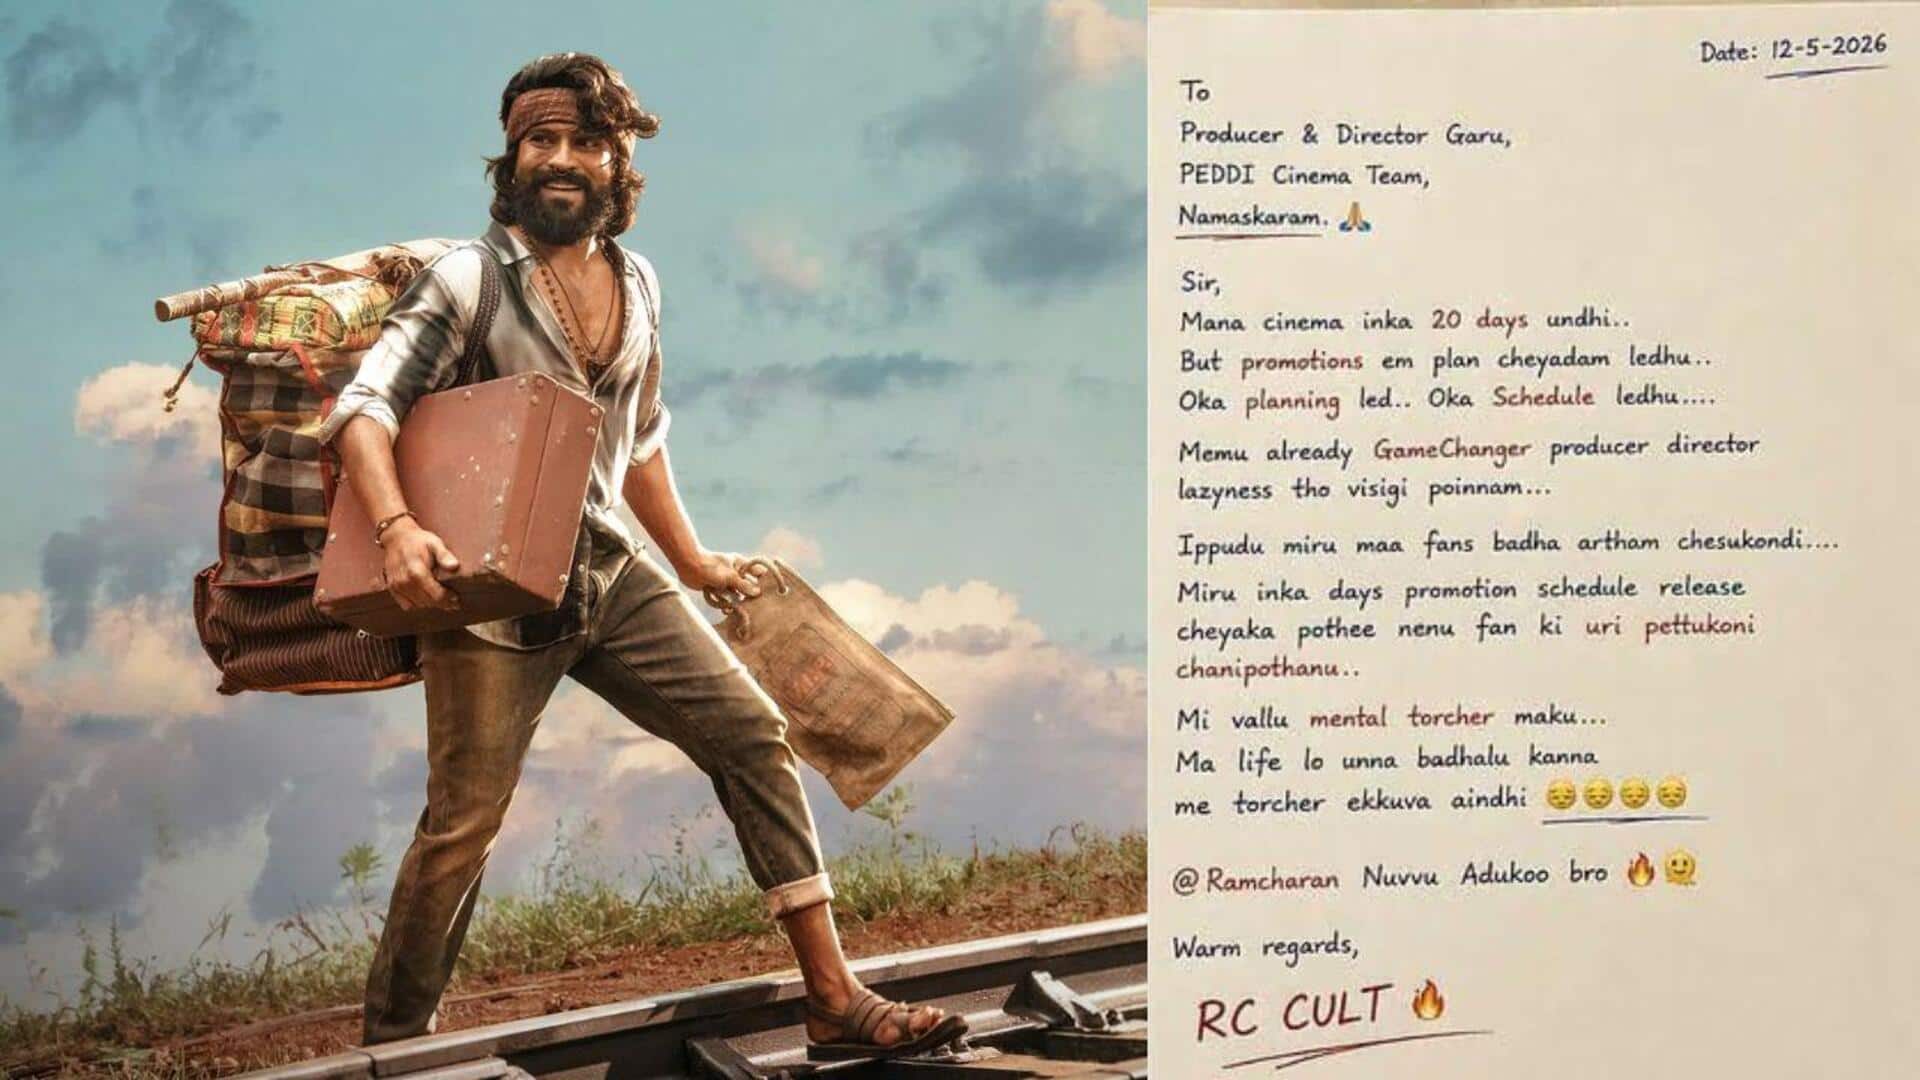 Date: 12-5-2026
To
Producer & Director Garu,
PEDDI Cinema Team,
Namaskaram. 🙏
Sir,
Mana cinema inka 20 days undhi..
But promotions em plan cheyadam ledhu..
Oka planning led.. Oka Schedule ledhu....
Memu already GameChanger producer director
lazyness tho visigi poinnam...
Ippudu miru maa fans badha artham chesukondi....
Miru inka days promotion schedule release
cheyaka pothee nenu fan ki uri pettukoni
chanipothanu..
Mi vallu mental torcher maku...
Ma life lo unna badhalu kanna
me torcher ekkuva aindhi 😔😔😔😔
@Ramcharan Nuvvu Adukoo bro 🔥🫠
Warm regards,
RC CULT 🔥